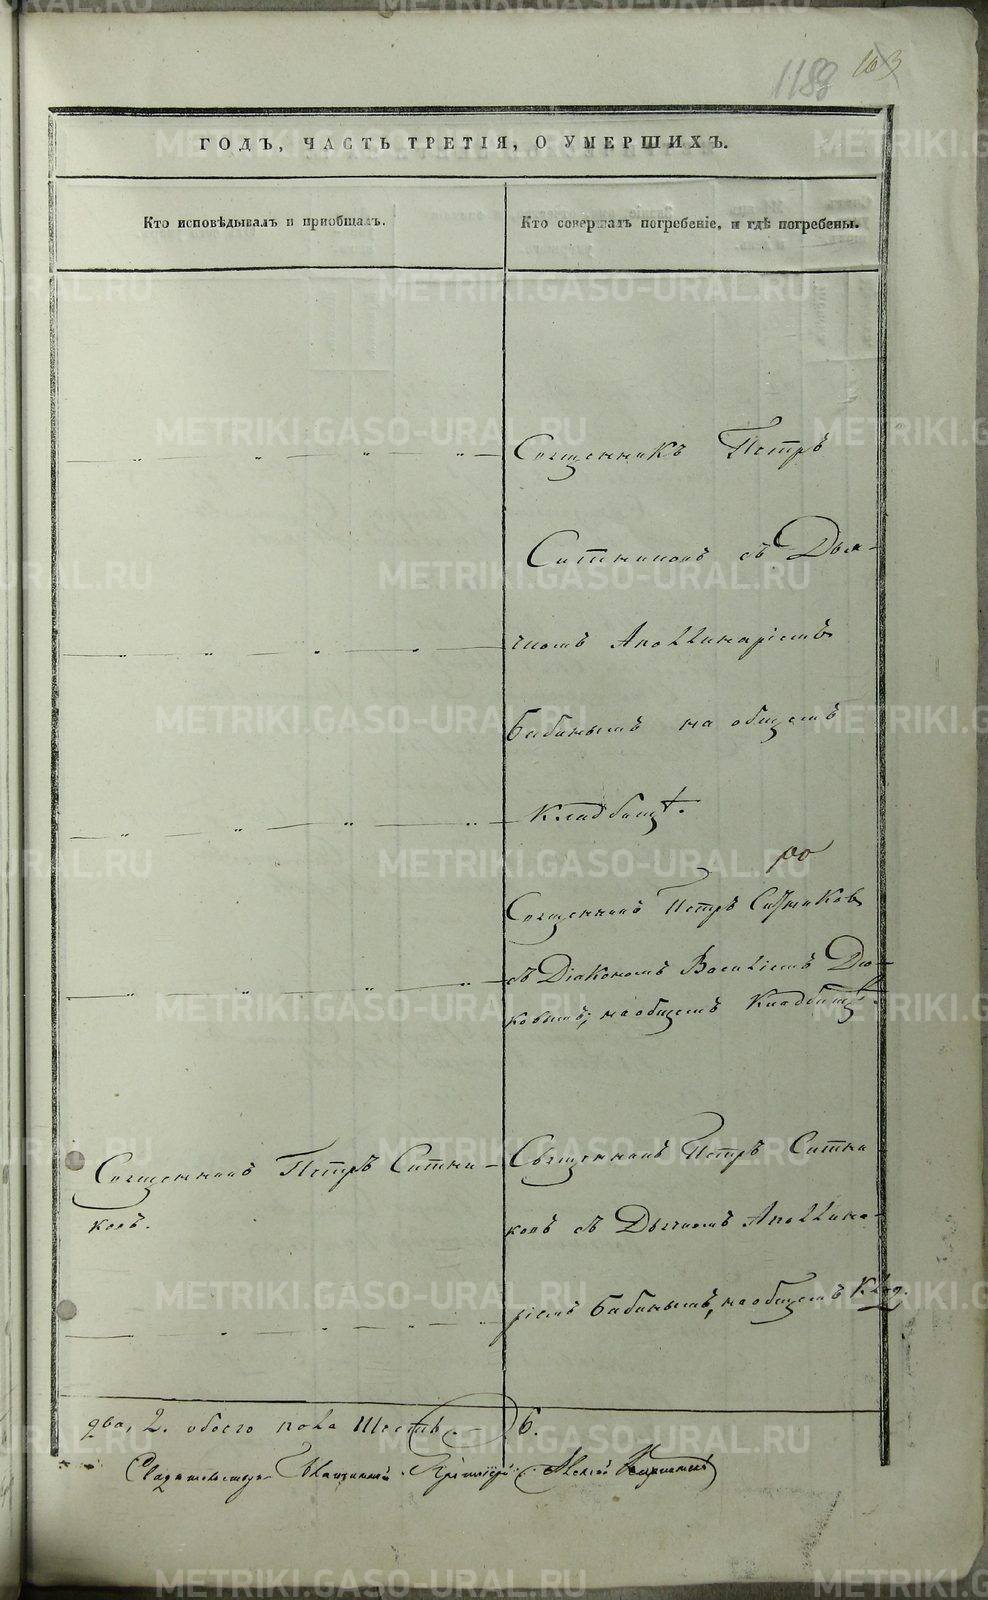 1188 103
ГОДЪ, ЧАСТЬ ТРЕТІЯ, О УМЕРШИХЪ.
Кто исповѣдывалъ и приобщалъ.
Кто совершалъ погребеніе, и гдѣ погребены.
Священникъ Петръ
Ситниковъ съ Дья-
чкомъ Аполлинаріемъ
Бабинымъ на общемъ
Кладбищѣ.
Священникъ Петръ Ситниковъ
съ Діакономъ Василіемъ
ковымъ, на общемъ Кладбищѣ.
Священникъ Петръ Ситни-
ковъ.
Священникъ Петръ Ситни
ковъ съ Дьячкомъ Аполлина-
ріемъ Бабинымъ, на общемъ Клад.
два, 2. обоего пола Шесть. 6.
METRIKI.GASO-URAL.RU